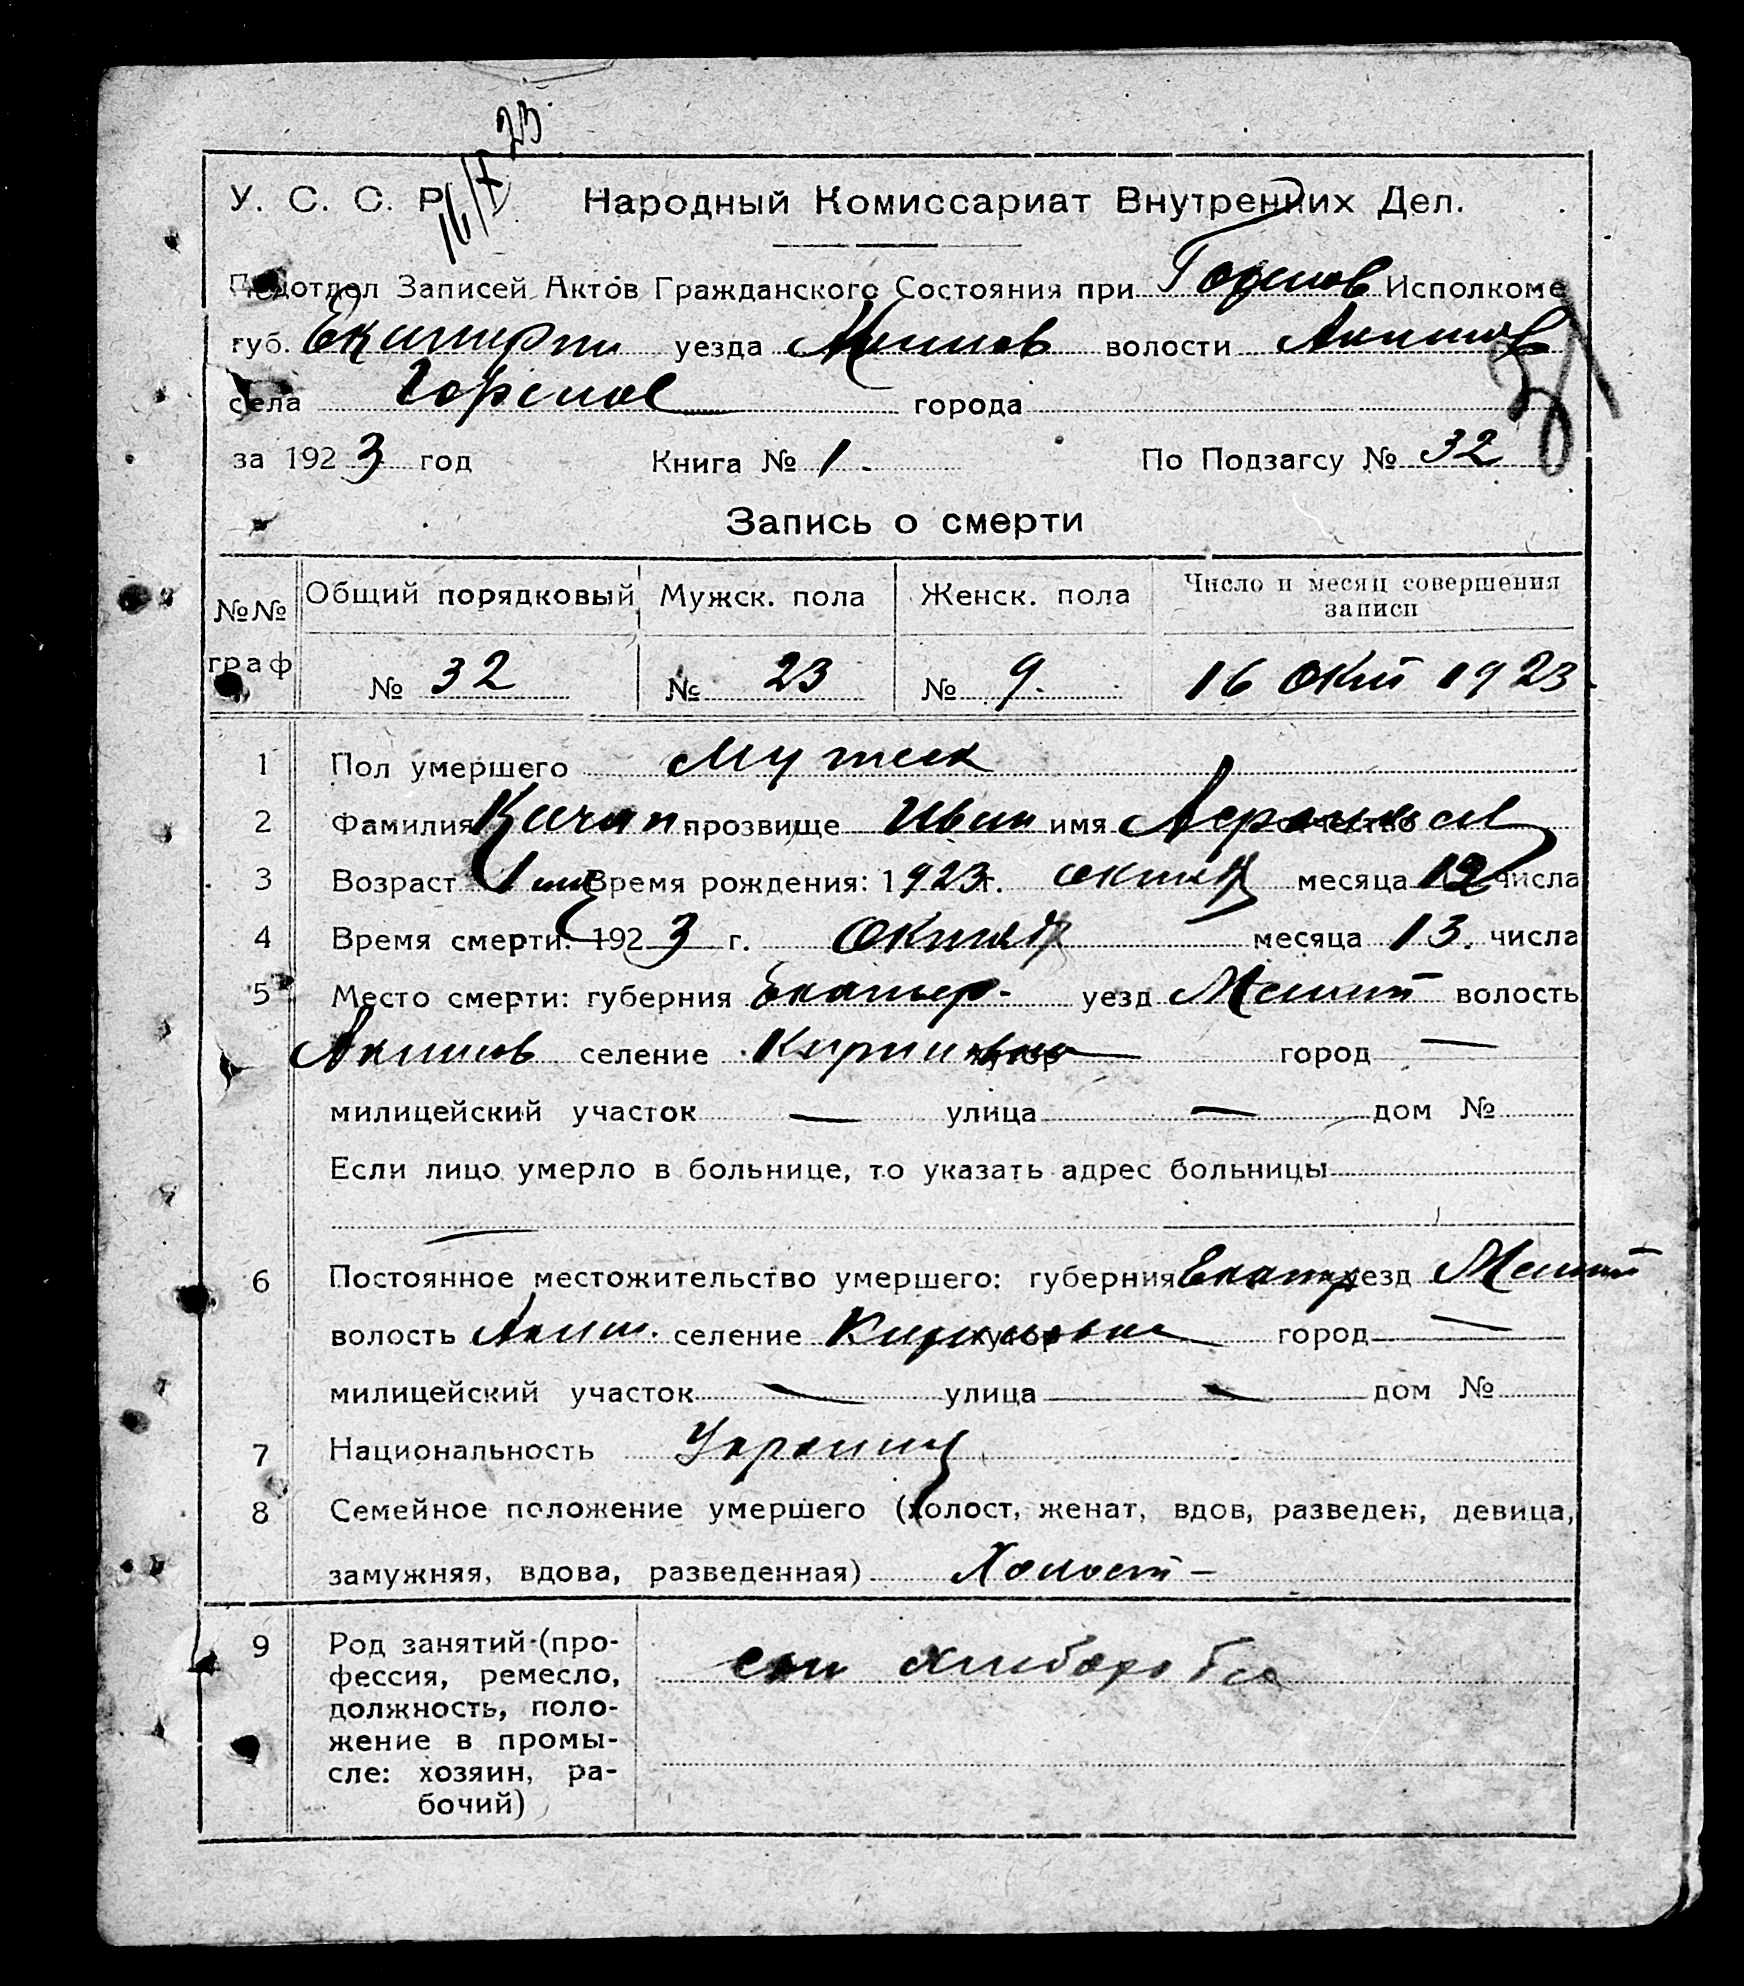 16/X 23
У. С. С. Р. Народный Комиссариат Внутренних Дел.
Подотдел Записей Актов Гражданского Состояния при Исполкоме
губ. уезда волости
села города
за 1923 год Книга № 1. По Подзагсу № 32
Запись о смерти
№№ граф Общий порядковый Мужск. пола Женск. пола Число и месяц совершения записи
№ 32 № 23 № 9. 16 окт 1923
1 Пол умершего Мужск
2 Фамилия прозвище Иван имя отчество
3 Возраст 1 Время рождения: 1923 г. октяб месяца 12 числа
4 Время смерти: 1923 г. октяб месяца 13. числа
5 Место смерти: губерния Екатер- уезд Мелит волость
Акимов селение хутор город —
милицейский участок — улица — дом №
Если лицо умерло в больнице, то указать адрес больницы
—
6 Постоянное местожительство умершего: губерния Екатер уезд Мелит
волость Аким. селение хутор город —
милицейский участок — улица — дом №
7 Национальность Украинц
8 Семейное положение умершего (холост, женат, вдов, разведен, девица,
замужняя, вдова, разведенная) Холост —
9 Род занятий (про-
фессия, ремесло,
должность, поло-
жение в промы-
сле: хозяин, ра-
бочий)
сын хлебороба